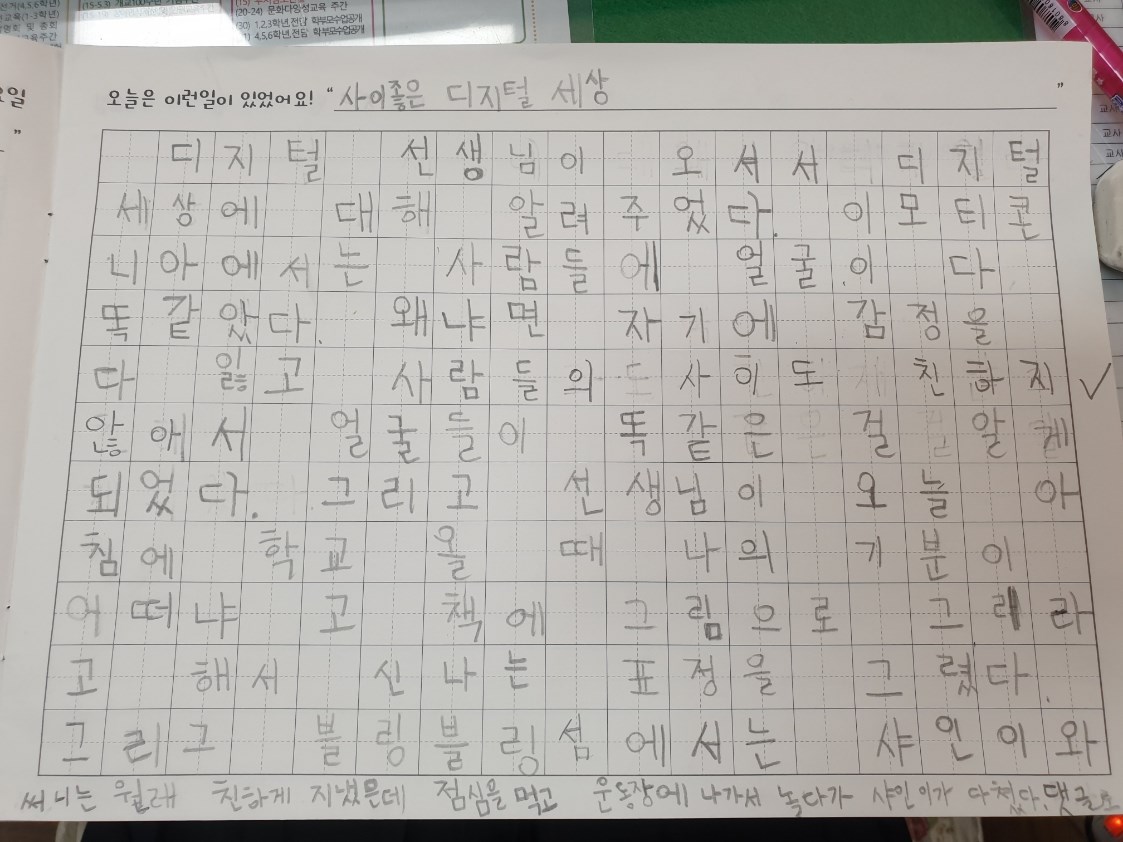 (20-24) 문화다양성교육 주간
(30) 1,2,3학년,전담 학부모수업공개
4,5,6학년,전담 학부모수업공개
오늘은 이런일이 있었어요! “사이좋은 디지털 세상”
디지털 선생님이 오셔서 디지털
세상에 대해 알려주었다. 이모티콘
니아에서는 사람들에 얼굴이 다
똑같았다. 왜냐면 자기에 감정을
다 잃고 사람들의 사이도 친하지
않애서 얼굴들이 똑같은 걸 알게
되었다. 그리고 선생님이 오늘 아
침에 학교 올 때 나의 기분이
어떠냐고 책에 그림으로 그리라
고 해서 신나는 표정을 그렸다.
그리고 블링블링섬에서는 샤인이와
써니는 원래 친하게 지냈는데 점심을 먹고 운동장에 나가서 놀다가 샤인이가 다쳤다. 댓글로